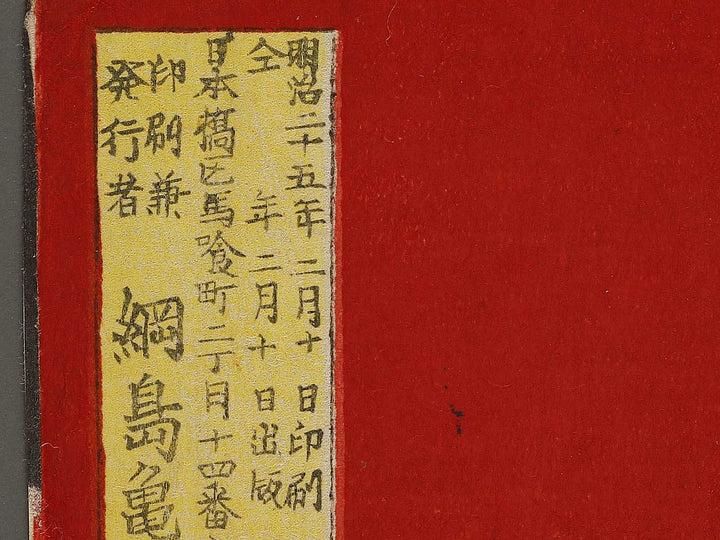 明治二十五年二月十 日印刷
仝 年二月十 日出版
日本橋区馬喰町二丁目十四番
印刷兼
発行者
綱島亀